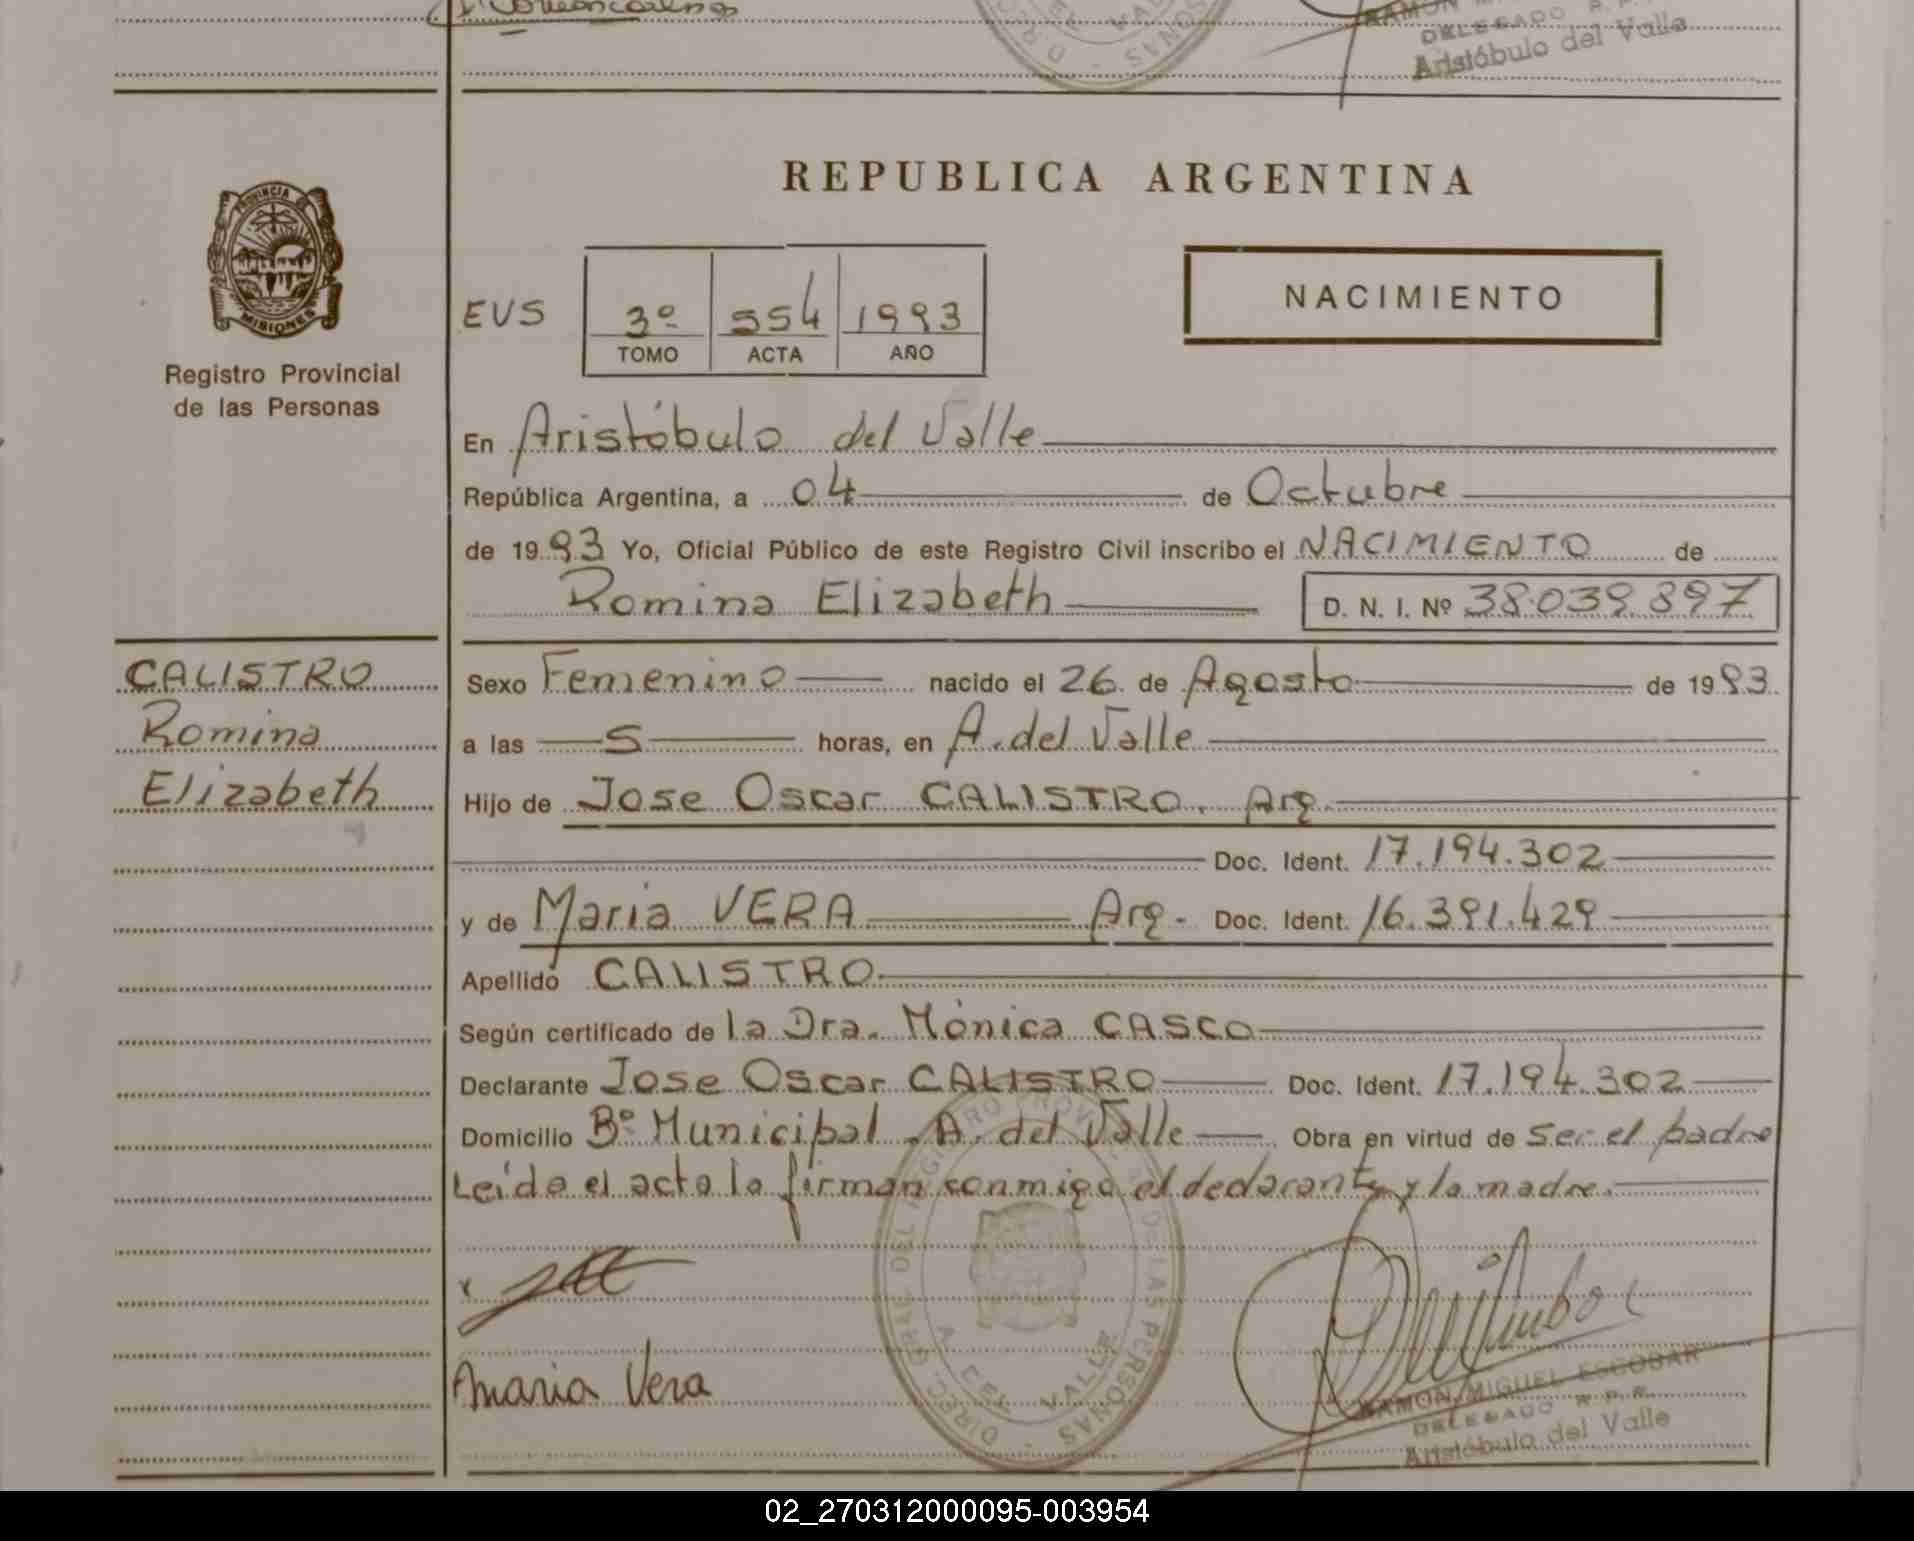 DELEGADO R.P.
Aristóbulo del Valle
REPUBLICA ARGENTINA
PROVINCIA DE
MISIONES
Registro Provincial
de las Personas
EVS 3º 554 1993
TOMO ACTA AÑO
NACIMIENTO
En Aristóbulo del Valle
República Argentina, a 04 de Octubre
de 1993 Yo, Oficial Público de este Registro Civil inscribo el NACIMIENTO de
Romina Elizabeth D. N. I. Nº 38.039.897
CALISTRO
Romina
Elizabeth
Sexo Femenino nacido el 26 de Agosto de 1993
a las 5 horas, en A. del Valle
Hijo de Jose Oscar CALISTRO. Arg.
Doc. Ident. 17.194.302
y de Maria VERA Arg. Doc. Ident. 16.391.429
Apellido CALISTRO
Según certificado de la Dra. Mónica CASCO
Declarante Jose Oscar CALISTRO Doc. Ident. 17.194.302
Domicilio Bº Municipal . A. del Valle Obra en virtud de ser el padre
Leída el acta la firman conmigo el declarante y la madre.
Maria Vera
DIREC. GRAL. DEL REGISTRO PROVINCIAL DE LAS PERSONAS
A. DEL VALLE
RAMON MIGUEL ESCOBAR
DELEGADO R.P.P.
Aristóbulo del Valle
02_270312000095-003954